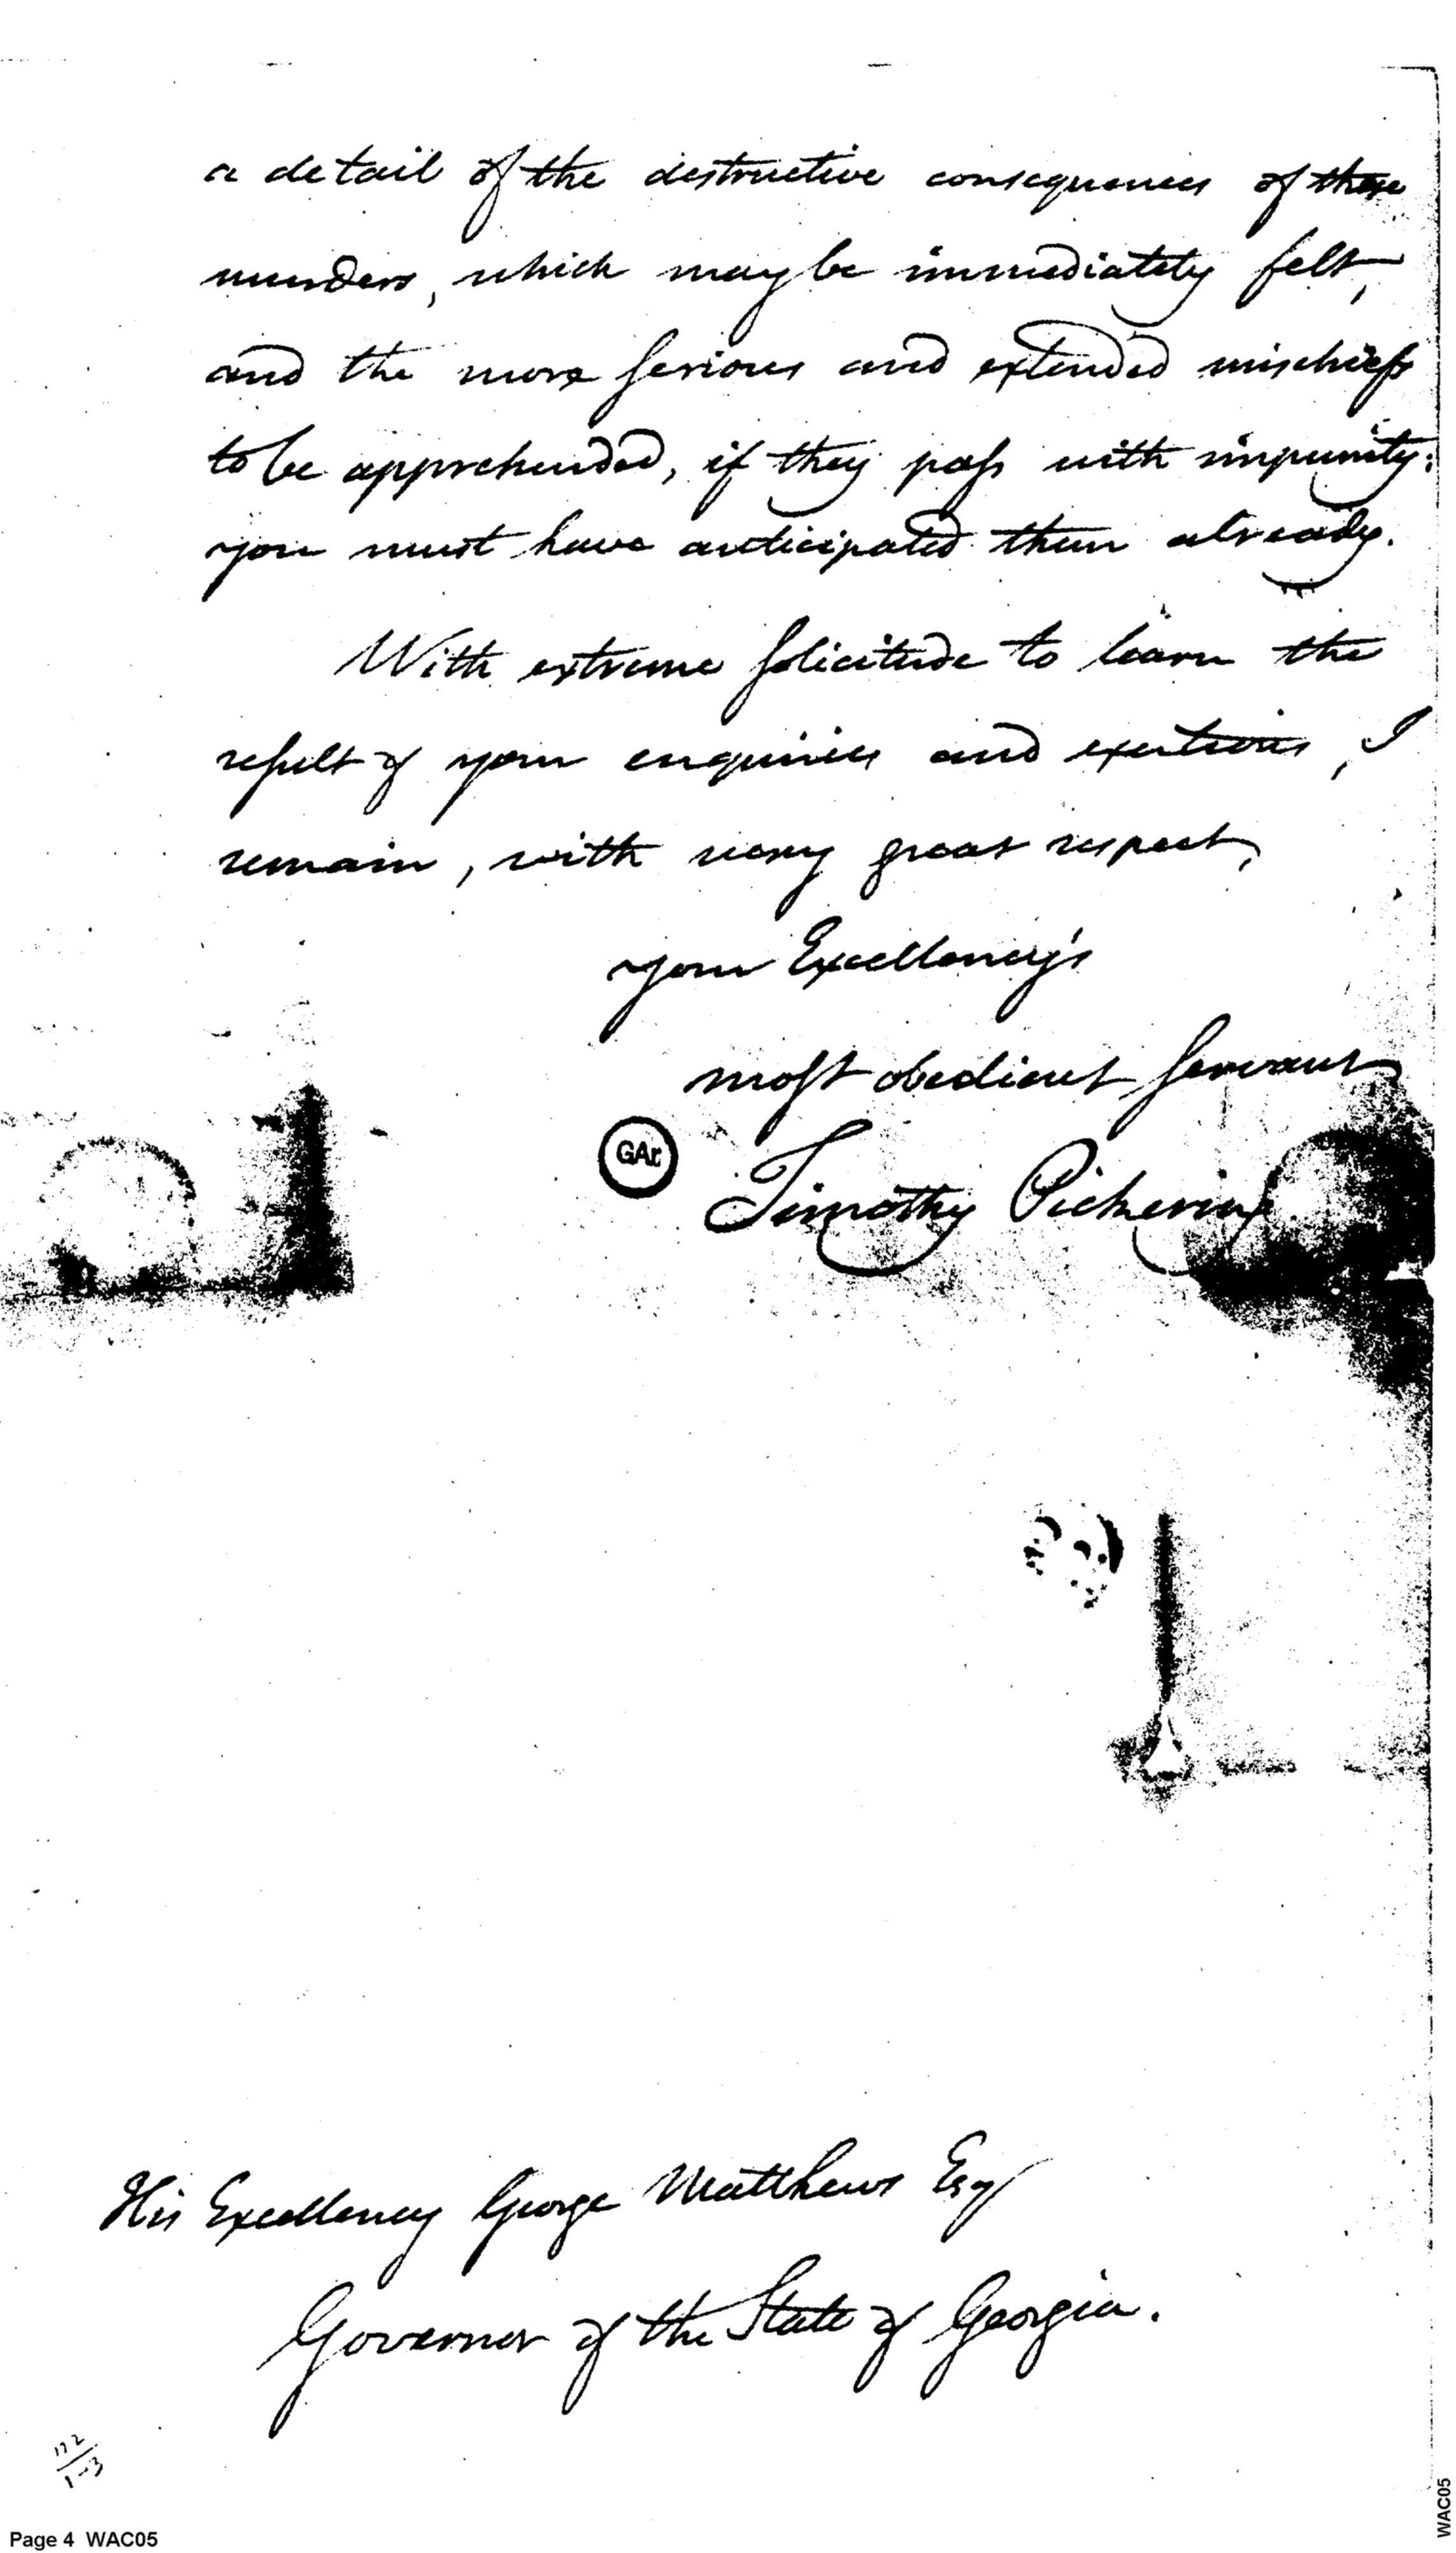 a detail of the destructive consequences of these
murders, which may be immediately felt,
and the more serious and extended mischiefs
to be apprehended, if they pass with impunity:
you must have anticipated them already.
With extreme solicitude to learn the
result of your enquiries and exertions, I
remain, with very great respect,
your Excellency's
most obedient servant
GAr.
Timothy Pickering
His Excellency George Matthews Esq
Governor of the State of Georgia.
Page 4 WAC05
WAC05